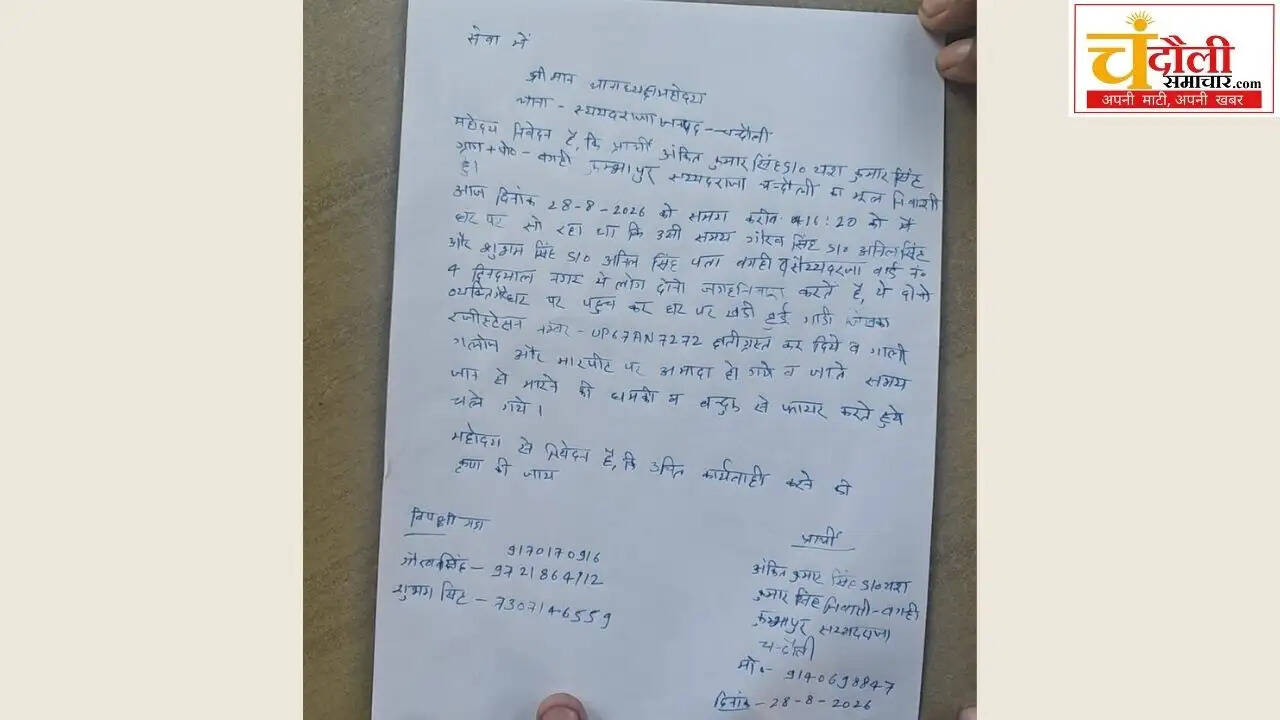 सेवा में
श्रीमान थानाध्यक्ष महोदय
थाना - सय्यदराजा जनपद - चन्दौली
महोदय निवेदन है, कि प्रार्थी अंकित कुमार सिंह S/o यश कुमार सिंह
ग्राम + पो० - बगही कुम्भापुर सय्यदराजा चन्दौली का मूल निवासी
हूं।
आज दिनांक 28-8-2026 को समय करीब 16:20 को मैं
घर पर सो रहा था कि उसी समय गौरव सिंह S/o अनिल सिंह
और शुभम सिंह S/o अनिल सिंह पता बगही व सैय्यदराजा वार्ड नं०
4 दिनदयाल नगर ये लोग दोनो जगह निवास करते है, ये दोनो
व्यक्ति मेरे घर पर पहुच कर घर पर खडी हुई गाडी जिसका
रजीस्टेसन नम्बर - UP67AN7272 क्षतीग्रस्त कर दिये व गाली
गलौज और मारपीट पर अमादा हो गये व जाते समय
जान से मारने की धमकी व बन्दुक से फायर करते हुये
चले गये।
महोदय से निवेदन है, कि उचित कार्यवाही करने की
कृपा की जाय
विपक्षी गण
9170170916
गौरव सिंह - 9721864112
शुभम सिंह - 7307146559
प्रार्थी
अंकित कुमार सिंह S/o यश
कुमार सिंह निवासी - बगही
कुम्भापुर सय्यदराजा
चन्दौली
मो० - 9140698847
दिनांक - 28-8-2026
चंदौली
समाचार.com
अपनी माटी, अपनी खबर